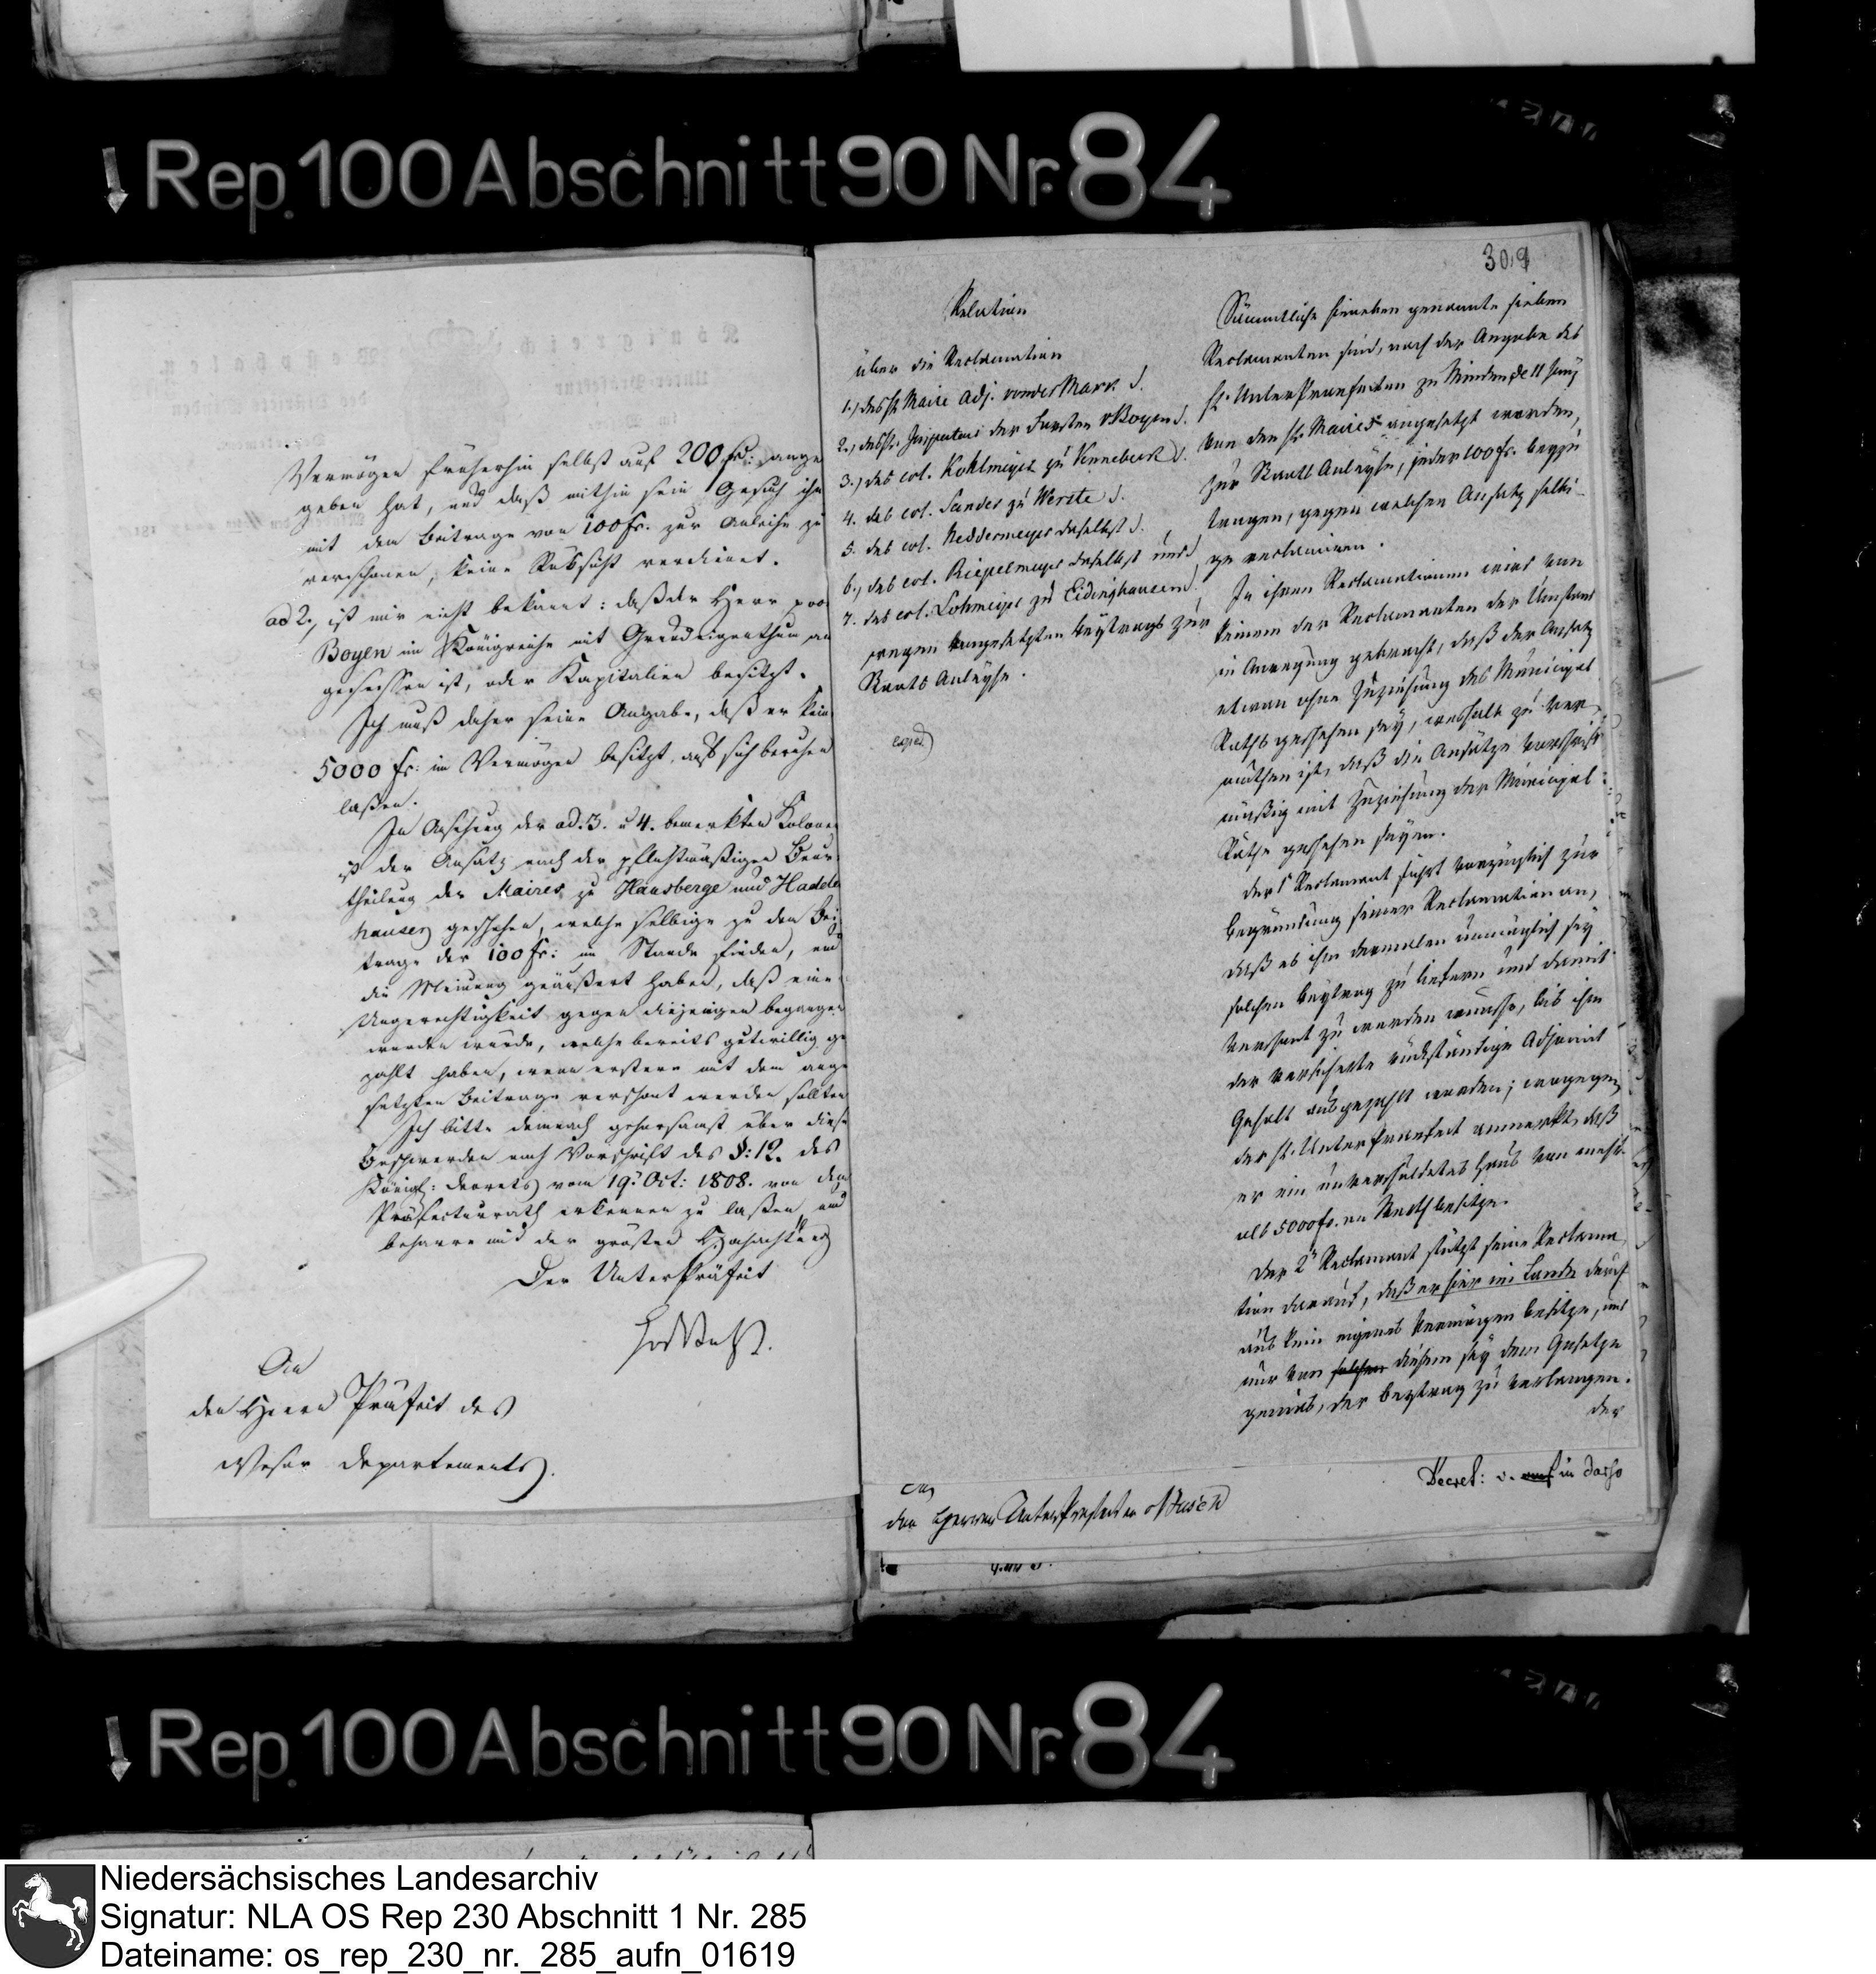 Rep. 100 Abschnitt 90 Nr. 84
Vermögen früherhin selbst auf 200 fr: ange
geben hat, und daß mithin sein Gesuch ihn
mit dem Beitrage von 100 fr. zur Anleihe zu
verschonen, keine Rücksicht verdienet.
ad 2., ist mir nicht bekannt: daß der Herr von
Boyen im Königreiche mit Grundeigenthum an
gesessen ist, oder Kapitalien besitzt.
Ich muß daher seine Angabe, daß er kein
5000 fr: im Vermögen besitzt, auf sich beruhen
laßen.
In Ansehung der ad. 3. u 4. bemerkten Kolonen
ist der Ansatz nach der pflichtmäßigen Beur
theilung der Maires zu Hausberge und Hadden
hausen geschehen, welche selbige zu dem Bei
trage der 100 fr: im Stande finden, und
die Meinung geäußert haben, daß eine
Ungerechtigkeit gegen diejenigen begangen
werden würde, welche bereits gutwillig ge
zahlt haben, wenn erstere mit dem ange
setzten Beitrage verschont werden sollten
Ich bitte demnach gehorsamst über diese
Beschwerden nach Vorschrift des §: 12. des
Königl: Decrets vom 19. Oct: 1808. von dem
Präfecturrath erkennen zu laßen, und
beharre mit der größten Hochachtung
Der UnterPräfect
An
den Herrn Präfect des
Weser Departements.
309
Relation
über die Reclamation
1., des H. Maire Adj. von der Marck
2., des H. Inspectors der Forsten v Boyen
3., des col. Kohlmeyer zu Vennebeck
4. des col. Sander zu Werste
5. des col. Neddermeyer daselbst
6., des col. Riepelmeyer daselbst und
7. des col. Lohmeyer zu Eidinghausen
wegen angesetzten Beytrags zur
Staats Anleyhe.
exped.
Sämmtliche hieneben genannte sieben
Reclamanten sind, nach der Angabe des
H. UnterPraefecten zu Minden de 11 Juny
von den H. Maires angesetzt worden,
zur Staats Anleyhe, jeder 100 fr. beyzu
tragen, gegen welchen Ansatz selbi-
ge reclamiren.
In ihren Reclamationen wird von
keinem der Reclamanten der Umstand
in Anregung gebracht, daß der Ansatz
etwan ohne Zuziehung des Municipal
Raths geschehen sey, weshalb zu ver
muthen ist, daß die Ansätze vorschrift
mäßig mit Zuziehung der Municipal
Räthe geschehen seyen.
Der 1 Reclamant führt vorzüglich zur
Begründung seiner Reclamation an,
daß es ihm dermalen unmöglich sey
solchen Beytrag zu liefern und damit
verschont zu werden wünsche, bis ihm
der versicherte rückständige Adjoint
Gehalt ausgezahlt worden; wogegen
der H. UnterPraefect anmerkt, daß
er ein unverschuldetes Haus von mehr
als 5000 fr. an Werth besitze.
Der 2 Reclamant stützt seine Reclama
tion darauf, daß er hier im Lande durch
aus kein eigenes Vermögen besitze, und
nur von solchen diesem sey dem Gesetze
gemäs, der Beytrag zu verlangen.
der
An
den Herrn UnterPrefecten
Decret: v. in dorso
Rep. 100 Abschnitt 90 Nr. 84
Niedersächsisches Landesarchiv
Signatur: NLA OS Rep 230 Abschnitt 1 Nr. 285
Dateiname: os_rep_230_nr._285_aufn_01619